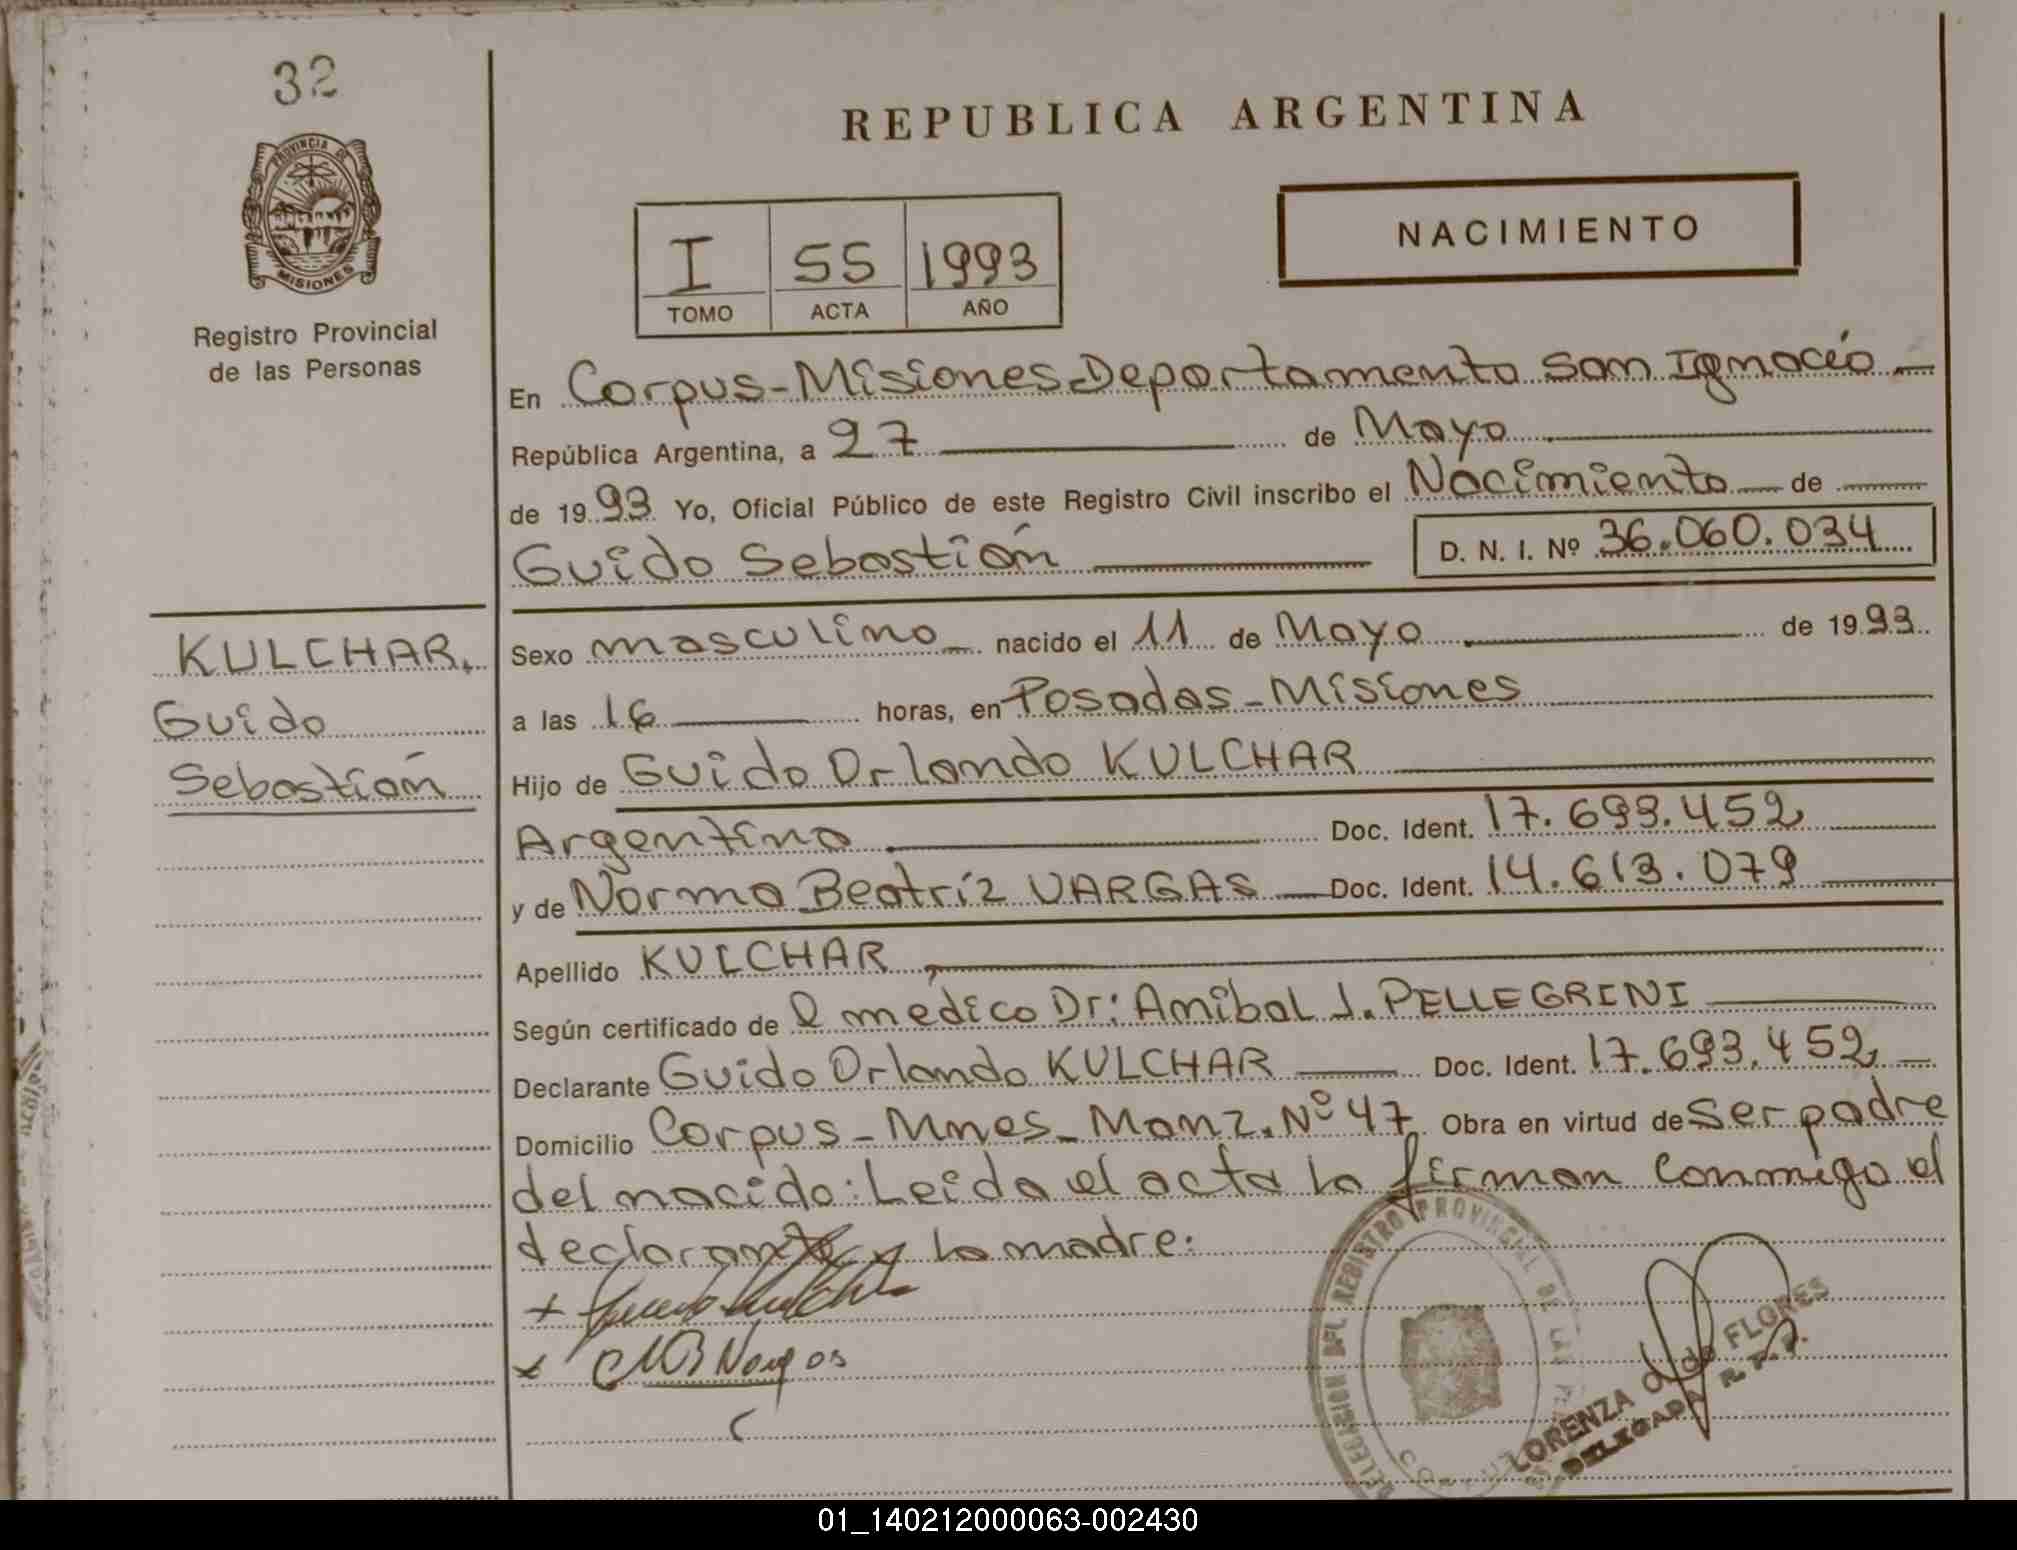 32
PROVINCIA DE
MISIONES
Registro Provincial
de las Personas
REPUBLICA ARGENTINA
NACIMIENTO
I 55 1993
TOMO ACTA AÑO
En Corpus-Misiones-Departamento San Ignacio
República Argentina, a 27 de Mayo
de 1993 Yo, Oficial Público de este Registro Civil inscribo el Nacimiento de
Guido Sebastián D. N. I. Nº 36.060.034
KULCHAR,
Guido
Sebastián
Sexo masculino nacido el 11 de Mayo de 1993
a las 16 horas, en Posadas-Misiones
Hijo de Guido Orlando KULCHAR
Argentino Doc. Ident. 17.693.452
y de Norma Beatríz VARGAS Doc. Ident. 14.613.079
Apellido KULCHAR
Según certificado de l médico Dr: Anibal J. PELLEGRINI
Declarante Guido Orlando KULCHAR Doc. Ident. 17.693.452
Domicilio Corpus-Mnes-Manz. Nº 47 Obra en virtud de Ser padre
del nacido: Leida el acta la firman conmigo el
declarante y la madre.
REGISTRO PROVINCIAL DE LAS
LORENZA de FLORES
DELEGADA R.P.P.
01_140212000063-002430